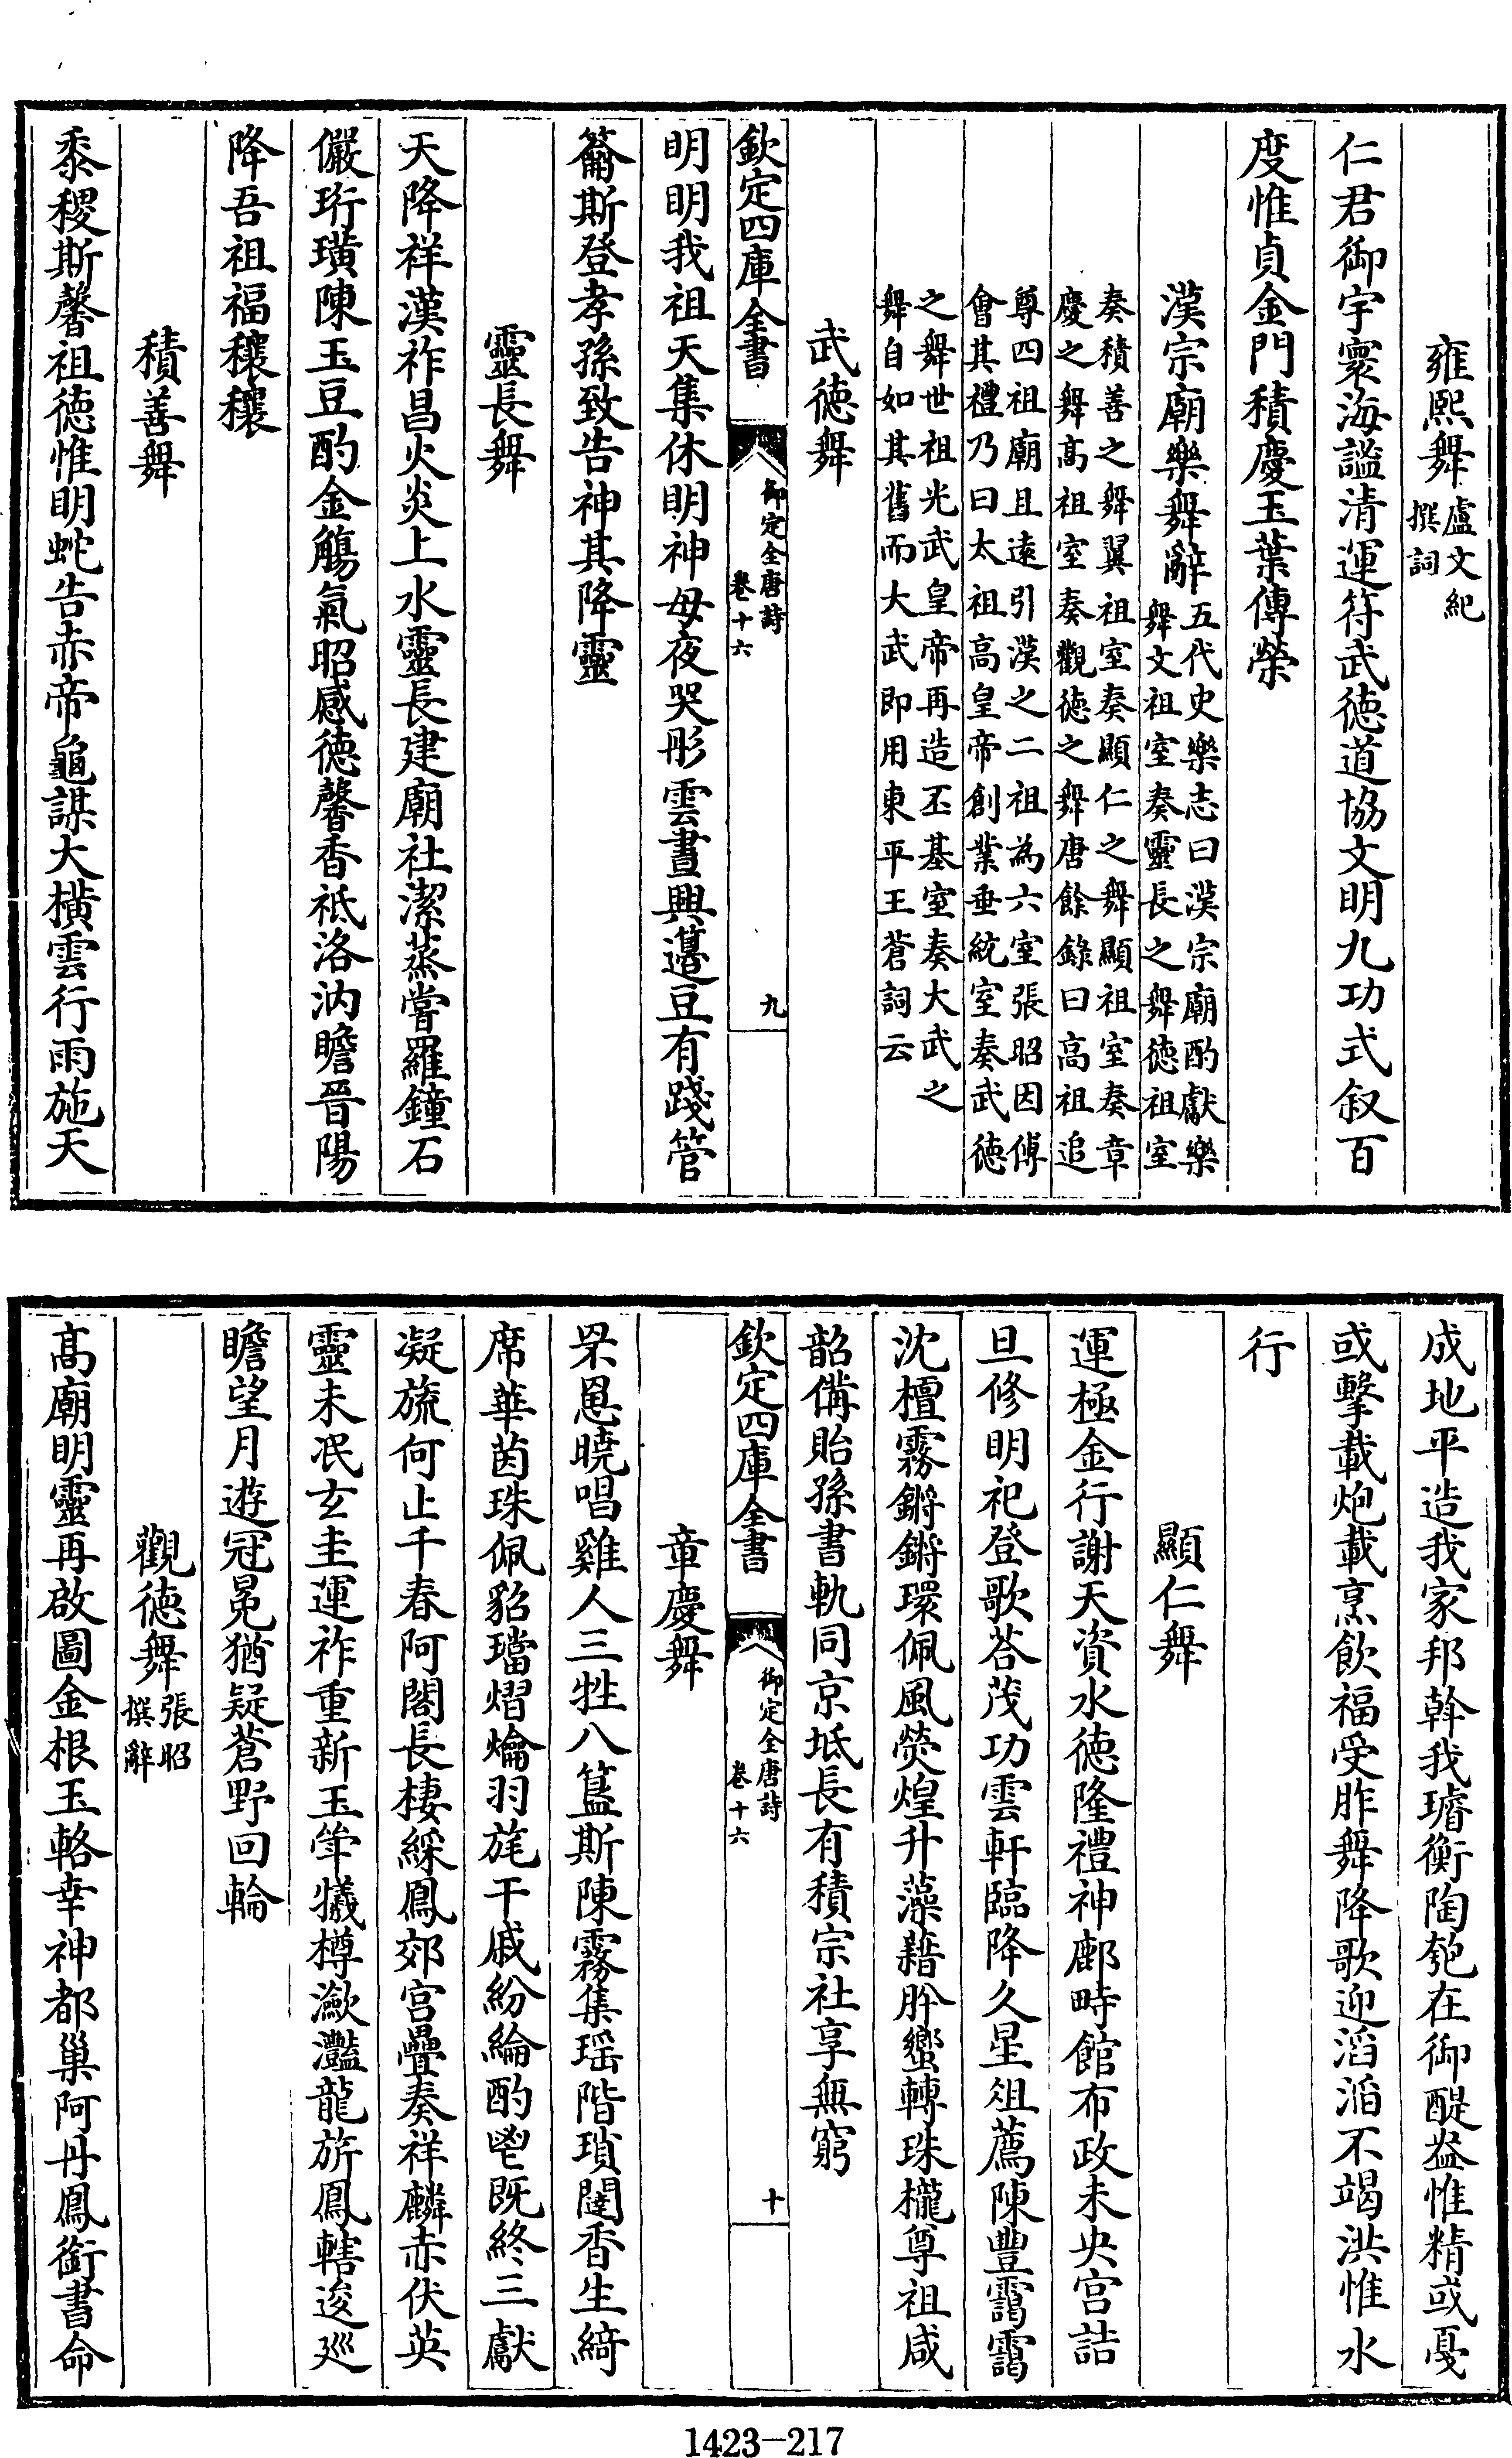 雍熙舞盧文紀
撰詞
仁君御宇寰海謐清運符武徳道協文明九功式叙百
度惟貞金門積慶玉葉傳榮
漢宗廟樂舞辭五代史樂志曰漢宗廟酌獻樂
舞文祖室奏靈長之舞徳祖室
奏積善之舞翼祖室奏顯仁之舞顯祖室奏章
慶之舞髙祖室奏觀徳之舞唐餘錄曰高祖追
尊四祖廟且逺引漢之二祖為六室張昭因傅
會其禮乃曰太祖高皇帝創業垂統室奏武徳
之舞世祖光武皇帝再造丕基室奏大武之
舞自如其舊而大武即用東平王蒼詞云
武徳舞
欽定四庫全書
御定全唐詩
卷十六
九
明明我祖天集休明神母夜哭彤雲晝興籩豆有踐管
籥斯登孝孫致告神其降靈
靈長舞
天降祥漢祚昌火炎上水靈長建廟社潔蒸嘗羅鐘石
儼珩璜陳玉豆酌金觴氣昭感徳馨香祗洛汭瞻晉陽
降吾祖福穰穰
積善舞
黍稷斯馨祖徳惟明蛇告赤帝龜謀大橫雲行雨施天
成地平造我家邦斡我璿衡陶匏在御醍盎惟精或戞
或擊載炮載烹飲福受胙舞降歌迎滔滔不竭洪惟水
行
顯仁舞
運極金行謝天資水徳隆禮神鄜畤館布政未央宫詰
旦修明祀登歌荅茂功雲軒臨降久星俎薦陳豐靄靄
沈檀霧鏘鏘環佩風熒煌升藻藉肸蠁轉珠櫳尊祖咸
韶備貽孫書軌同京坻長有積宗社享無窮
欽定四庫全書
御定全唐詩
卷十六
十
章慶舞
罘罳曉唱雞人三牲八簋斯陳霧集瑶階瑣闥香生綺
席華茵珠佩貂璫熠爚羽旄干戚紛綸酌鬯既終三獻
凝旒何止千春阿閣長棲綵鳳郊宫疊奏祥麟赤伏英
靈未泯玄圭運祚重新玉斚犧樽瀲灩龍旂鳳轄逡巡
瞻望月遊冠冕猶疑蒼野回輪
觀徳舞張昭
撰辭
髙廟明靈再啟圖金根玉輅幸神都巢阿丹鳳銜書命
1423-217